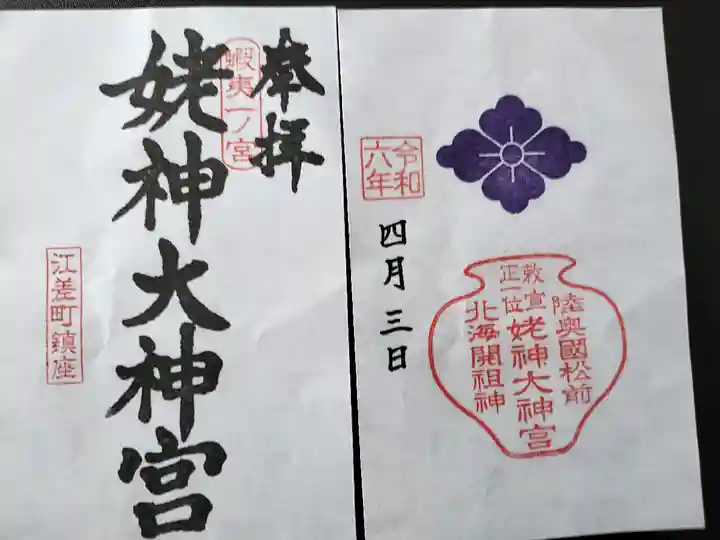 奉拝
蝦夷一ノ宮
姥神大神宮
江差町鎮座
令和
六年
四月三日
陸奥國松前
敕宣
正一位
姥神大神宮
北海開祖神